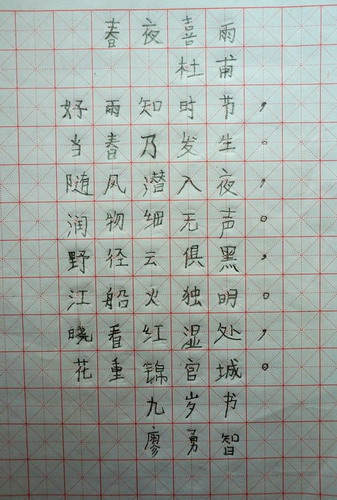 春夜喜雨
杜甫
好雨知时节，
当春乃发生。
随风潜入夜，
润物细无声。
野径云俱黑，
江船火独明。
晓看红湿处，
花重锦官城。
九岁书
廖勇智